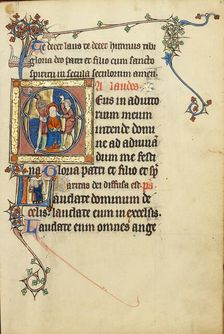 Te decet laus te decet hymnus tibi
gloria deo patri et filio cum sancto
spiritu in secula seculorum amen
A laudes
Deus in adiuto
rium meum
intende domi
ne ad adiuvan
dum me festi
na Gloria patri et filio et
caritas dei diffusa est ps
Laudate dominum de
celis laudate eum in excelsis
Laudate eum omnes ange